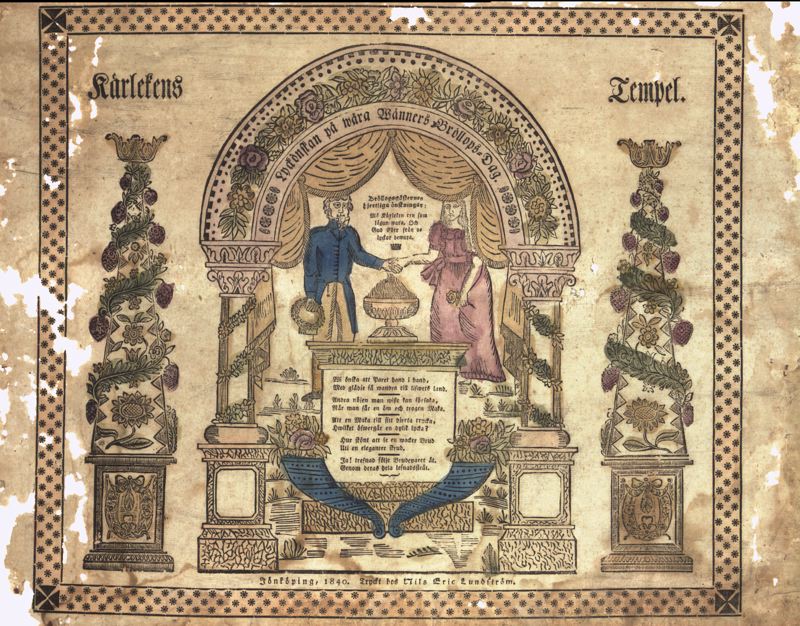 Kärlekens Tempel.
Lyckönskan på wåra Wänners Bröllops-Dag.
Bröllopsgästernes
hjertliga önskningar;
Må Kärleken ren som
lågan wara. Och
Gud Eder från
lyckor bewara.
Wi önska att Paret hand i hand,
Med glädje få wandra till lifwets land.
Andra nöjen man wisst kan försaka,
När man får en öm och trogen Maka.
Att en Maka till sitt hjerta trycka,
Hwilket öfwergår en dylik lycka?
Hur skönt att se en wacker Brud
Uti en elegante Skrud.
Ja! trefnad följe Brudeparet åt,
Genom deras hela lefnadsstråt.
Jönköping, 1840. Tryckt hos Nils Eric Lundström.